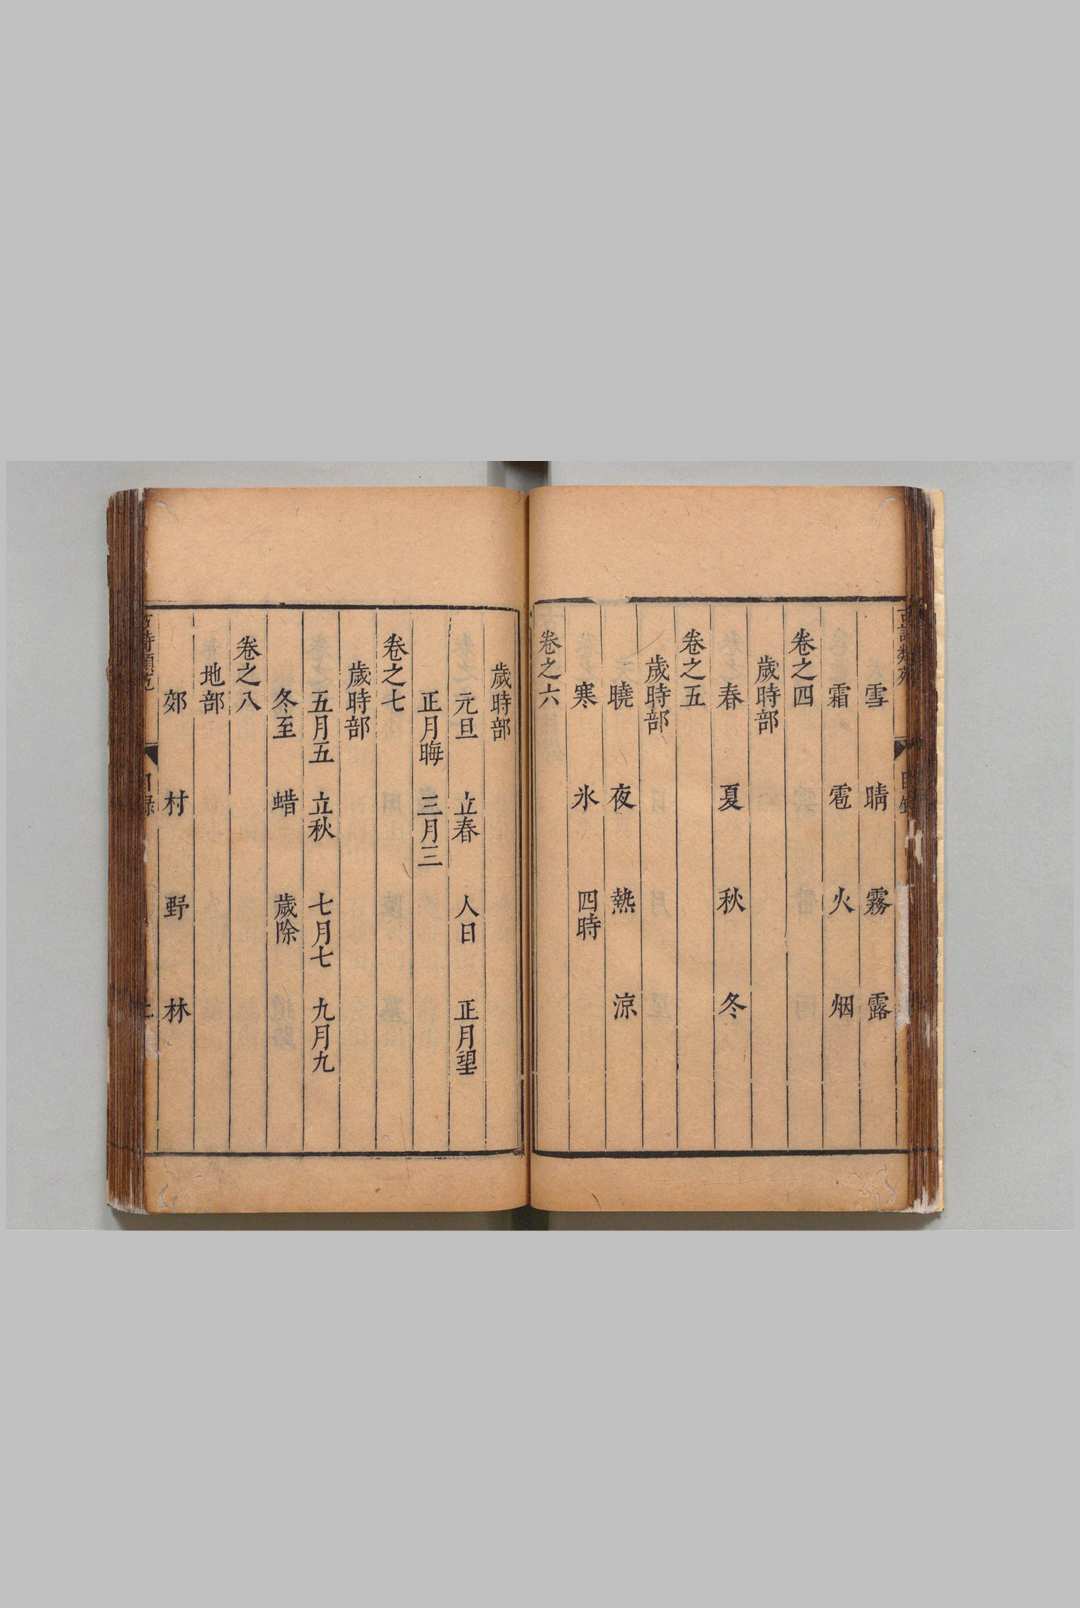 雪 晴 霧 露
霜 雹 火 烟
卷之四
歲時部
春 夏 秋 冬
卷之五
歲時部
曉 夜 熱 涼
寒 氷 四時
卷之六
歲時部
元旦 立春 人日 正月望
正月晦 三月三
卷之七
歲時部
五月五 立秋 七月七 九月九
冬至 蜡 歲除
卷之八
地部
郊 村 野 林